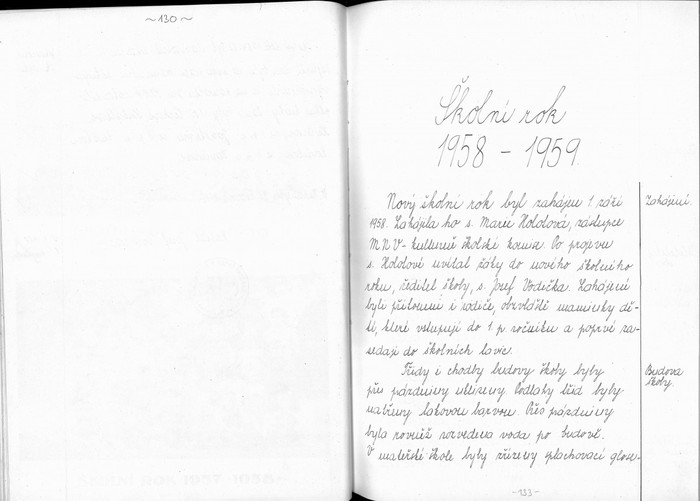 ~130~
Školní rok
1958 - 1959.
Nový školní rok byl zahájen 1. září
1958. Zahájila ho s. Marie Hololová, zástupce
MNV - kulturně školské komise. Po projevu
s. Hololové uvítal žáky do nového školního
roku, ředitel školy, s. Josef Vodička. Zahájení
byli přítomni i rodiče, obzvláště maminky dě-
tí, které vstupují do 1. p. ročníku a poprvé za-
sedají do školních lavic.
Třídy i chodby budovy školy byly
přes prázdniny vylíčeny. Podlahy tříd byly
natřeny lakovou barvou. Přes prázdniny
byla rovněž rozvedena voda po budově.
V mateřské škole byly zřízeny splachovací
Zahájení.
Budova
školy.
-133-